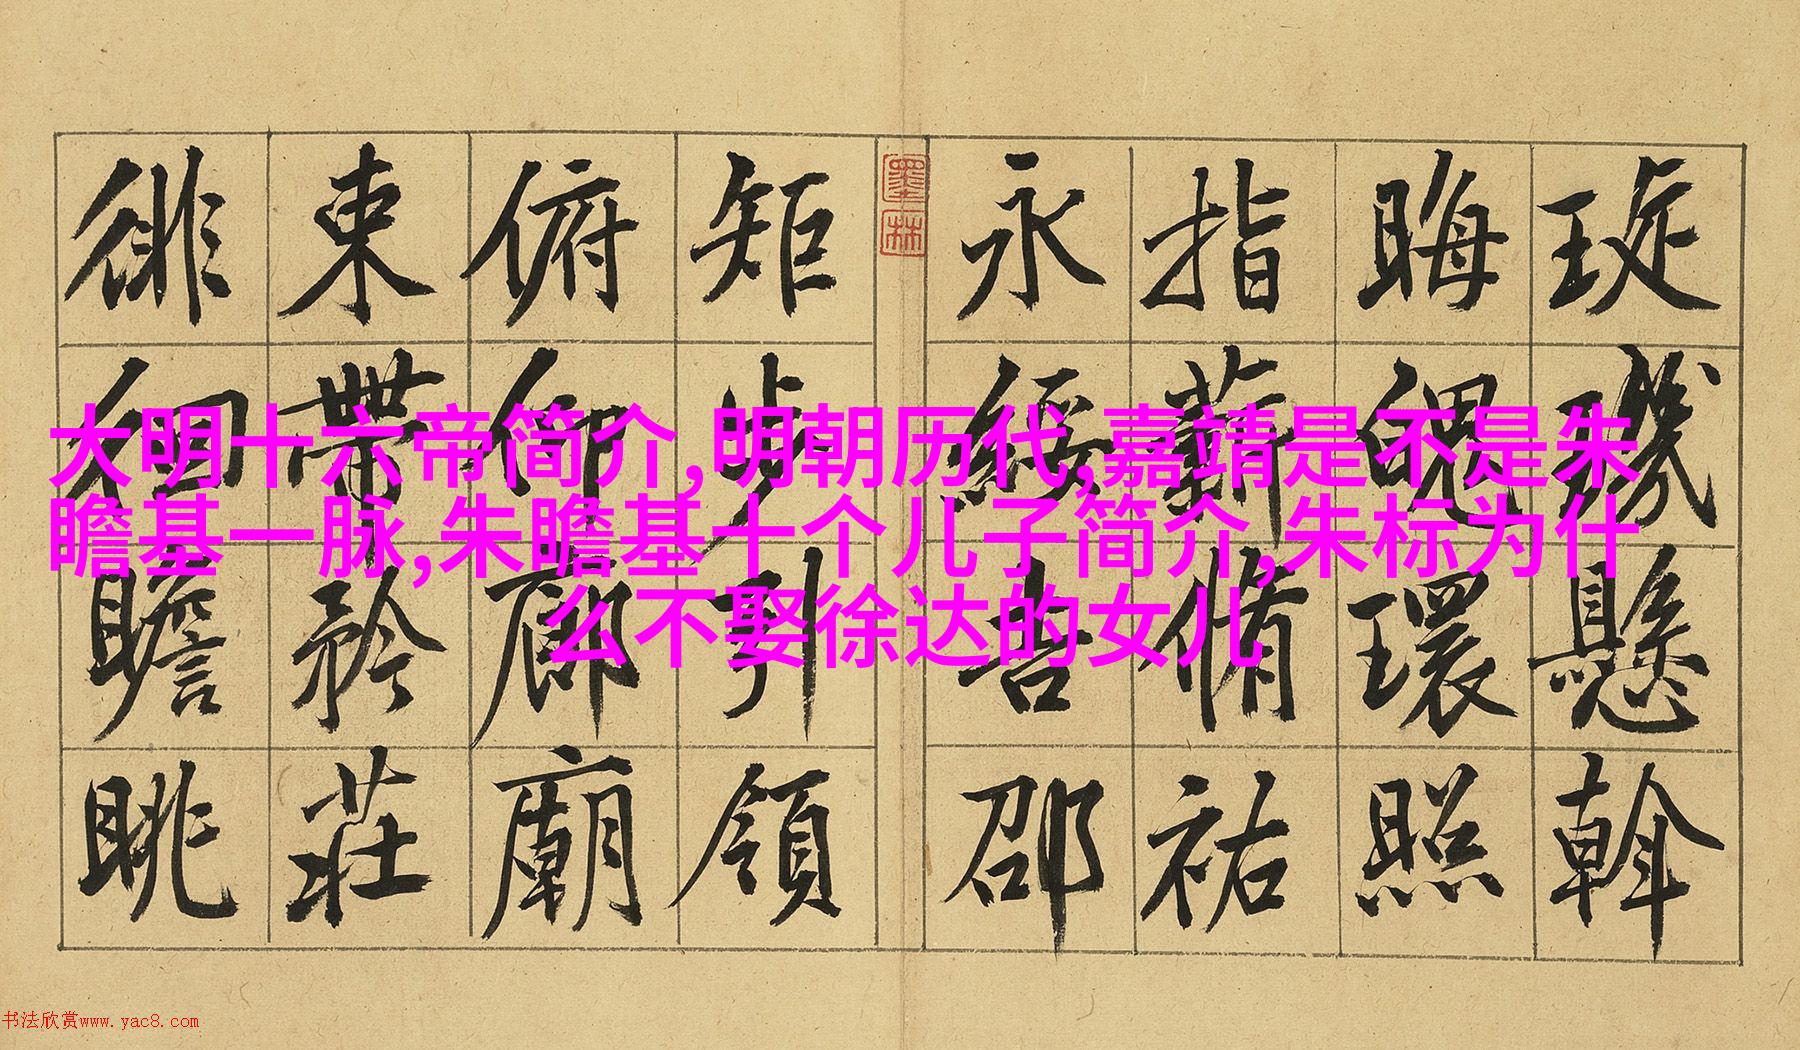 大明十六帝简介,明朝历代,嘉靖是不是朱
瞻基一脉,朱瞻基十个儿子简介,朱标为什
么不娶徐达的女儿
琁璣懸斡
晦魄環照
指薪脩祐
永綏吉邵
墨林
矩步引領
俯仰廊廟
束帶矜莊
徘徊瞻眺
书法欣赏www.yac8.com